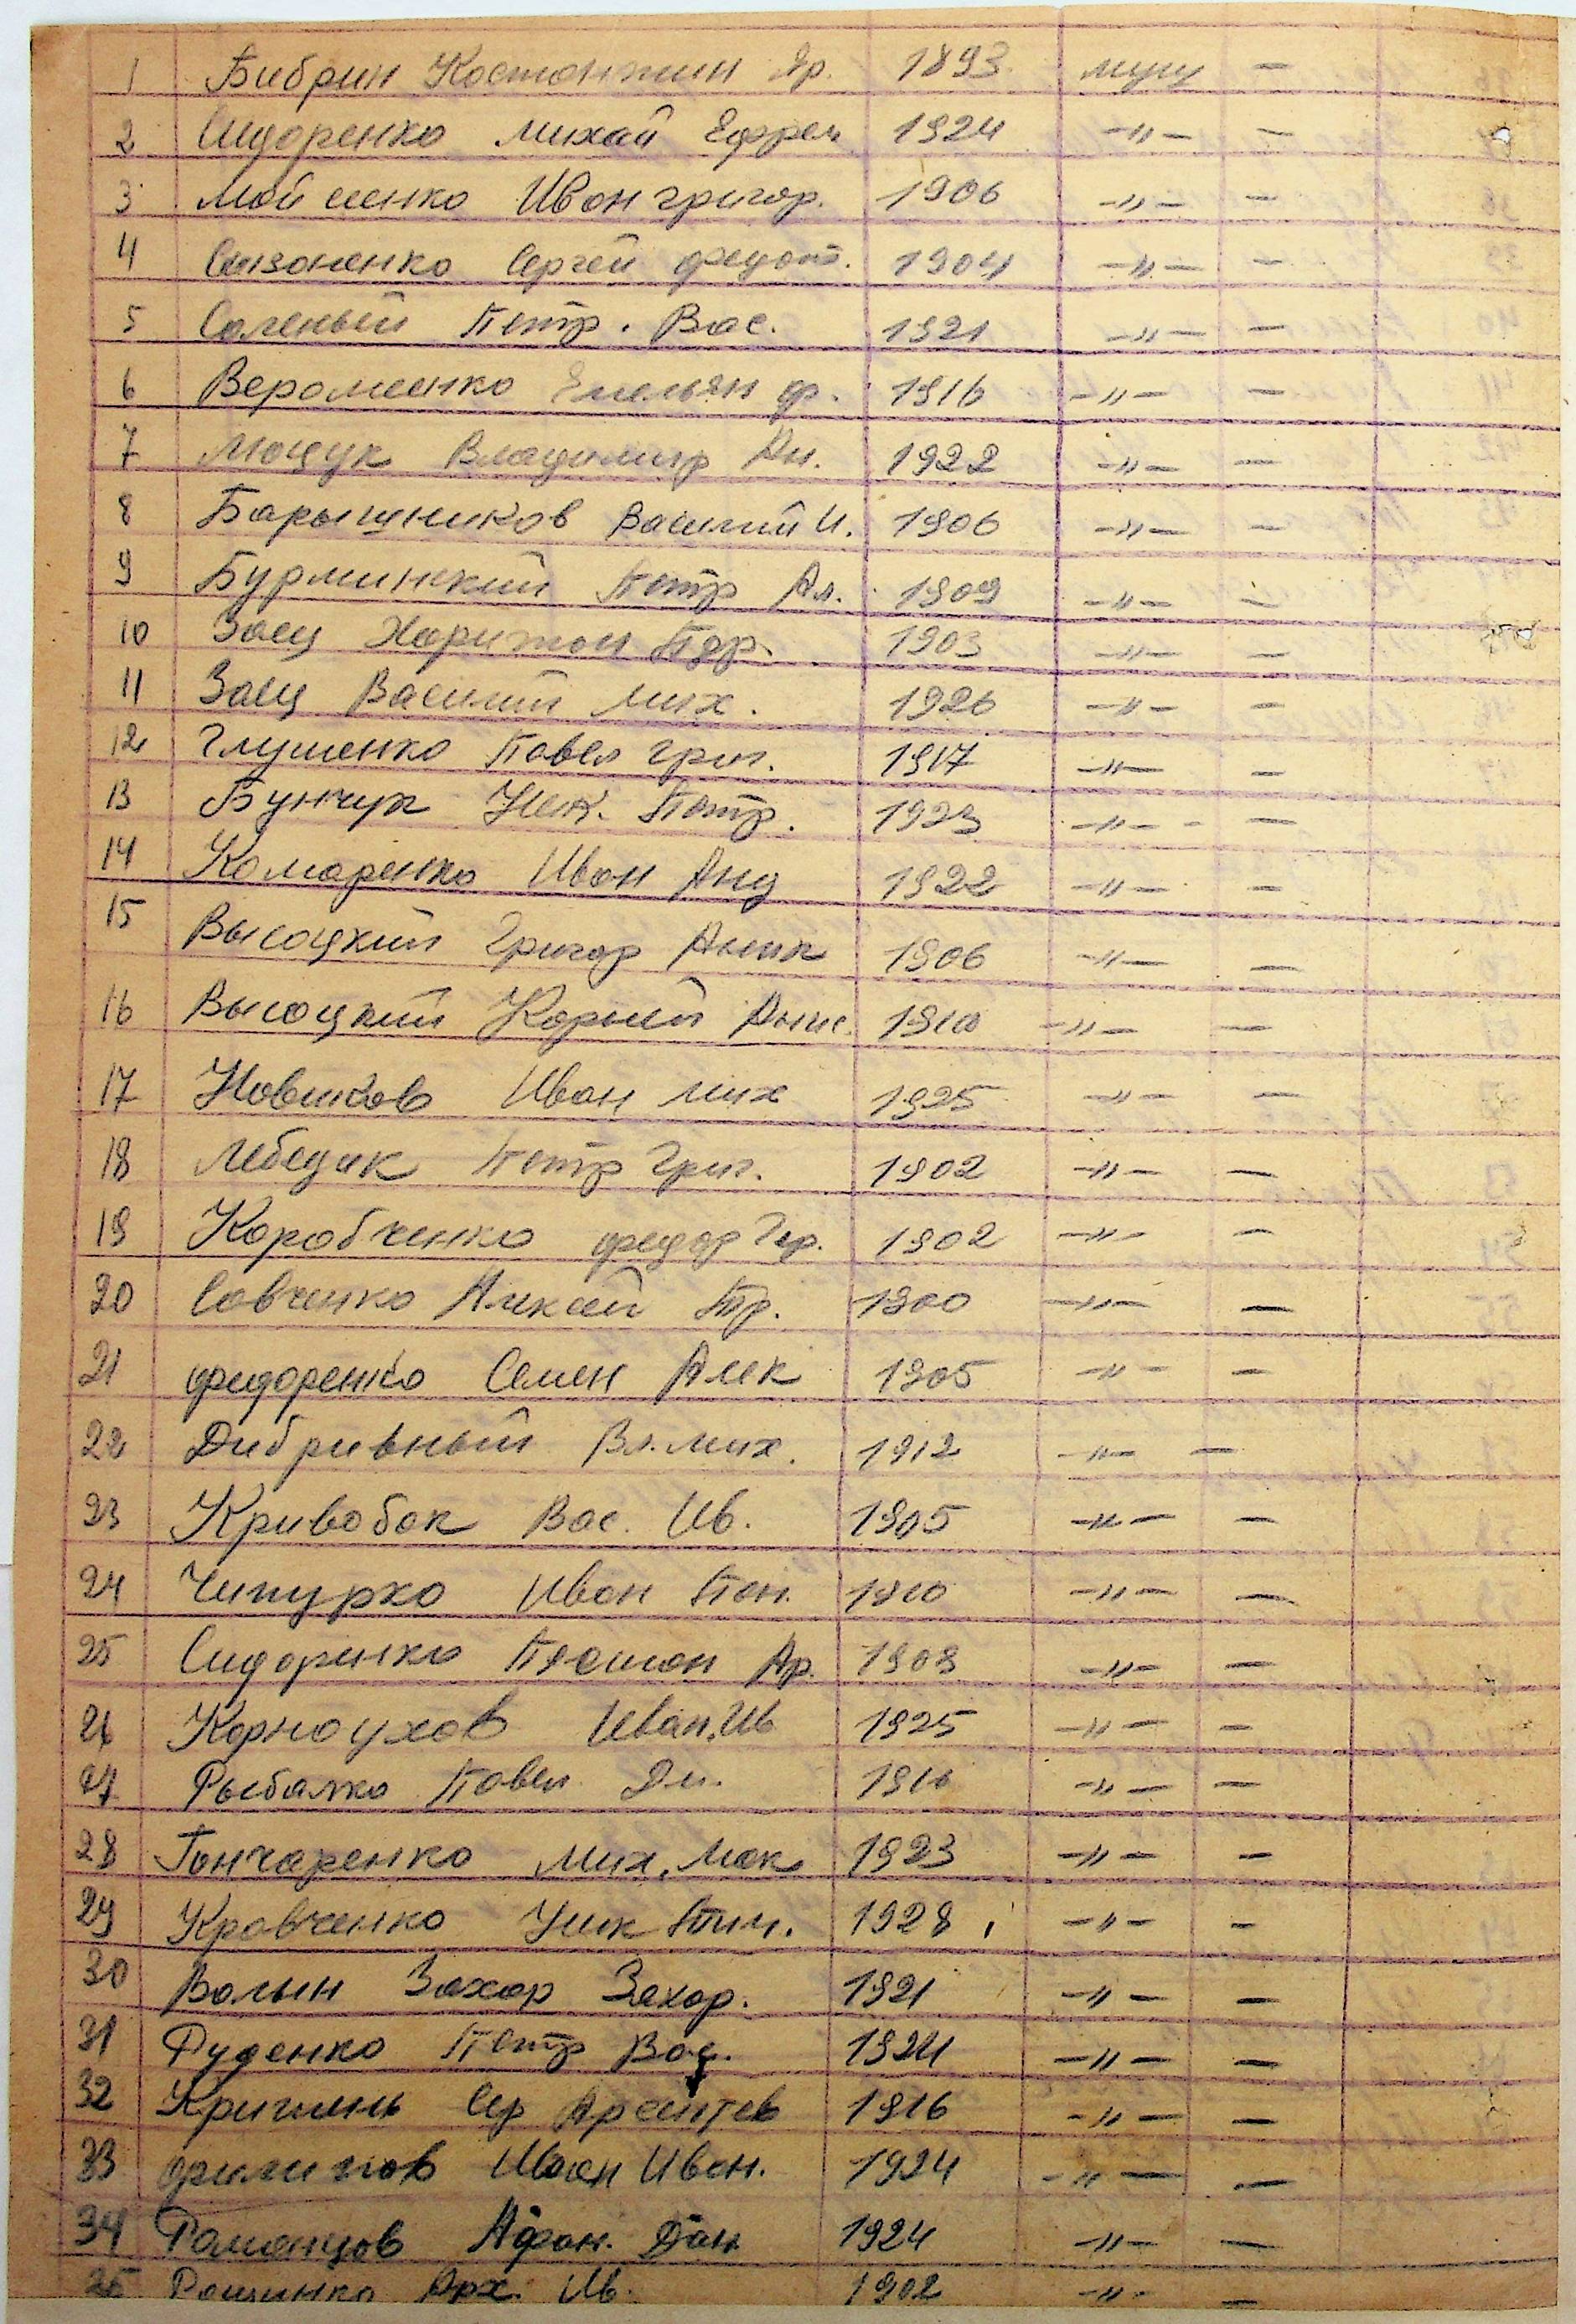 1 Бибрин Костонтин Яр. 1893 мущ —
2 Сидоренко Михай Ефрем 1924 —〃— —
3 Мойсеенко Ивон Григор. 1906 —〃— —
4 Сизоненко Сергей Федот. 1904 —〃— —
5 Соленый Петр. Вас. 1921 —〃— —
6 Веромеенко Емельян Ф. 1916 —〃— —
7 Моцук Владимир Ан. 1922 —〃— —
8 Барышников Василий И. 1906 —〃— —
9 Бурминский Петр Ал. 1909 —〃— —
10 Заец Харитон 1903 —〃— —
11 Заец Василий Мих. 1926 —〃— —
12 Глушенко Повел Григ. 1917 —〃— —
13 Бунчук Ник. Петр. 1923 —〃— —
14 Комаренко Ивон Анд 1922 —〃— —
15 Высоцкий Григор 1906 —〃— —
16 Высоцкий Корней 1910 —〃— —
17 Новиков Ивон Мих 1925 —〃— —
18 Лебедик Петр Григ. 1902 —〃— —
19 Коробченко Федор Гер. 1902 —〃— —
20 Совченко Алексей Тр. 1900 —〃— —
21 Федоренко Семен Алек 1905 —〃— —
22 Дибривный Вл. Мих. 1912 —〃— —
23 Кривобок Вас. Ив. 1905 —〃— —
24 Чипурко Ивон Пон. 1910 —〃— —
25 Сидоринко Ар. 1908 —〃— —
26 Корноухов Иван. Ив 1925 —〃— —
27 Рыбалко Повел Дм. 1916 —〃— —
28 Гончаренко Мих. Мак 1923 —〃— —
29 Кровченко Ник Тим. 1928 —〃— —
30 Волын Захор Захор. 1921 —〃— —
31 Руденко Петр Вас. 1924 —〃— —
32 Сер 1916 —〃— —
33 Филипов Ивон Ивон. 1924 —〃— —
34 Романцов Афон. Дан 1924 —〃— —
35 Рощинко Арх. Ив. 1902 —〃— —